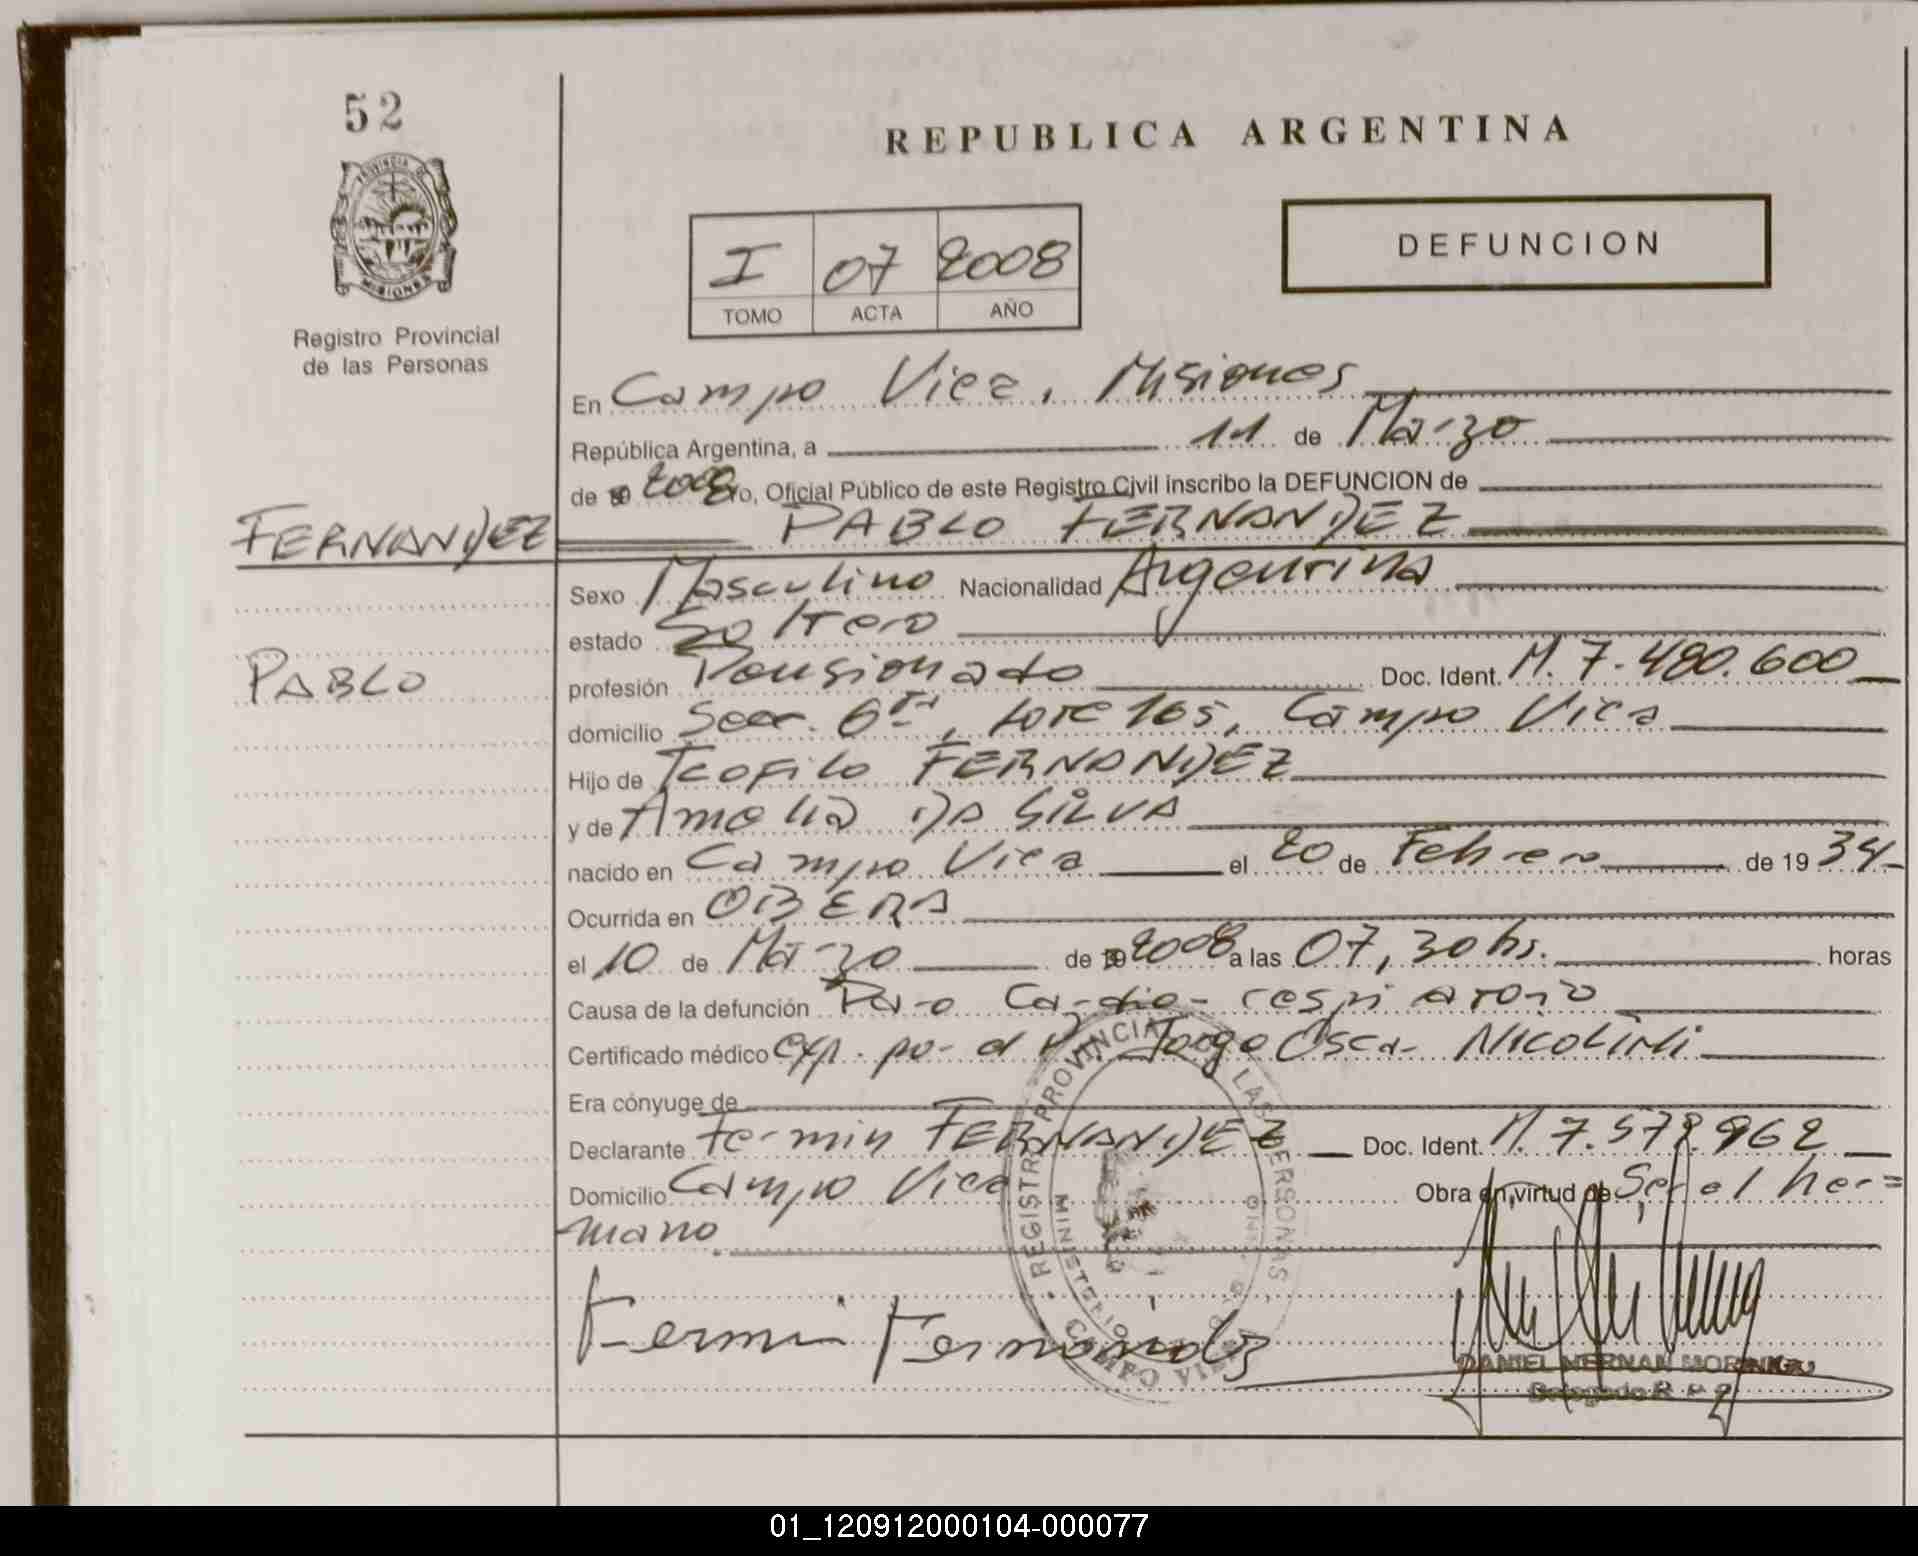 52
REPUBLICA ARGENTINA
PROVINCIA DE
MISIONES
Registro Provincial
de las Personas
I 07 2008
TOMO ACTA AÑO
DEFUNCION
En Campo Viera, Misiones
República Argentina, a 11 de Marzo
de 19 2008 yo, Oficial Público de este Registro Civil inscribo la DEFUNCION de
FERNANDEZ PABLO FERNANDEZ
Sexo Masculino Nacionalidad Argentina
estado Soltero
PABLO
profesión Pensionado Doc. Ident. M. 7.480.600
domicilio Secc. 6ta, Lote 165, Campo Viera
Hijo de Teofilo FERNANDEZ
y de Amelia DA SILVA
nacido en Campo Viera el 20 de Febrero de 1934
Ocurrida en OBERA
el 10 de Marzo de 19 2008 a las 07,30 hs. horas
Causa de la defunción Paro Cardio-respiratorio
Certificado médico exp. por el Dr. Jorge Oscar NICOLINI
Era cónyuge de
Declarante Fermin FERNANDEZ Doc. Ident. M. 7.578.962
Domicilio Campo Viera Obra en virtud de Ser el her=
mano.
Fermin Fernandez
REGISTRO PROVINCIAL DE LAS PERSONAS
MINISTERIO DE GOBIERNO
CAMPO VIERA
DANIEL HERNAN MORINIGO
Delegado R. P. P.
01_120912000104-000077